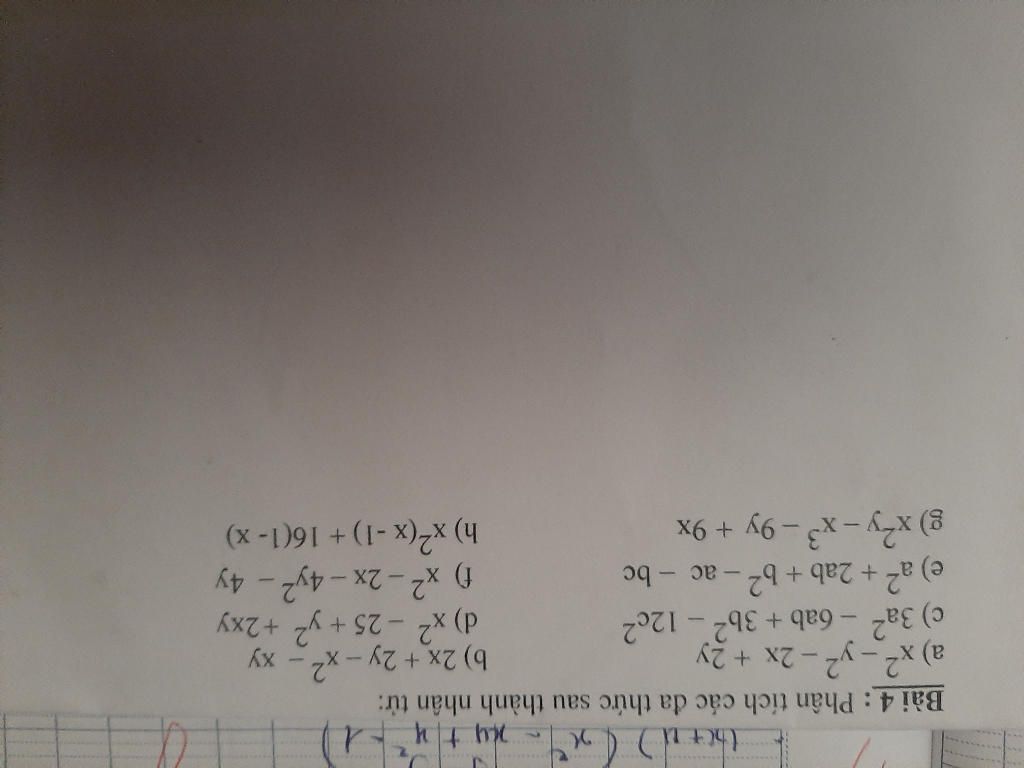 (x + y) (x² - xy + y² - 1)
Bài 4 : Phân tích các đa thức sau thành nhân tử:
a) x² – y² – 2x + 2y b) 2x + 2y – x² – xy
c) 3a² – 6ab + 3b² – 12c² d) x² – 25 + y² + 2xy
e) a² + 2ab + b² – ac – bc f) x² – 2x – 4y² – 4y
g) x²y – x³ – 9y + 9x h) x²(x -1) + 16(1- x)